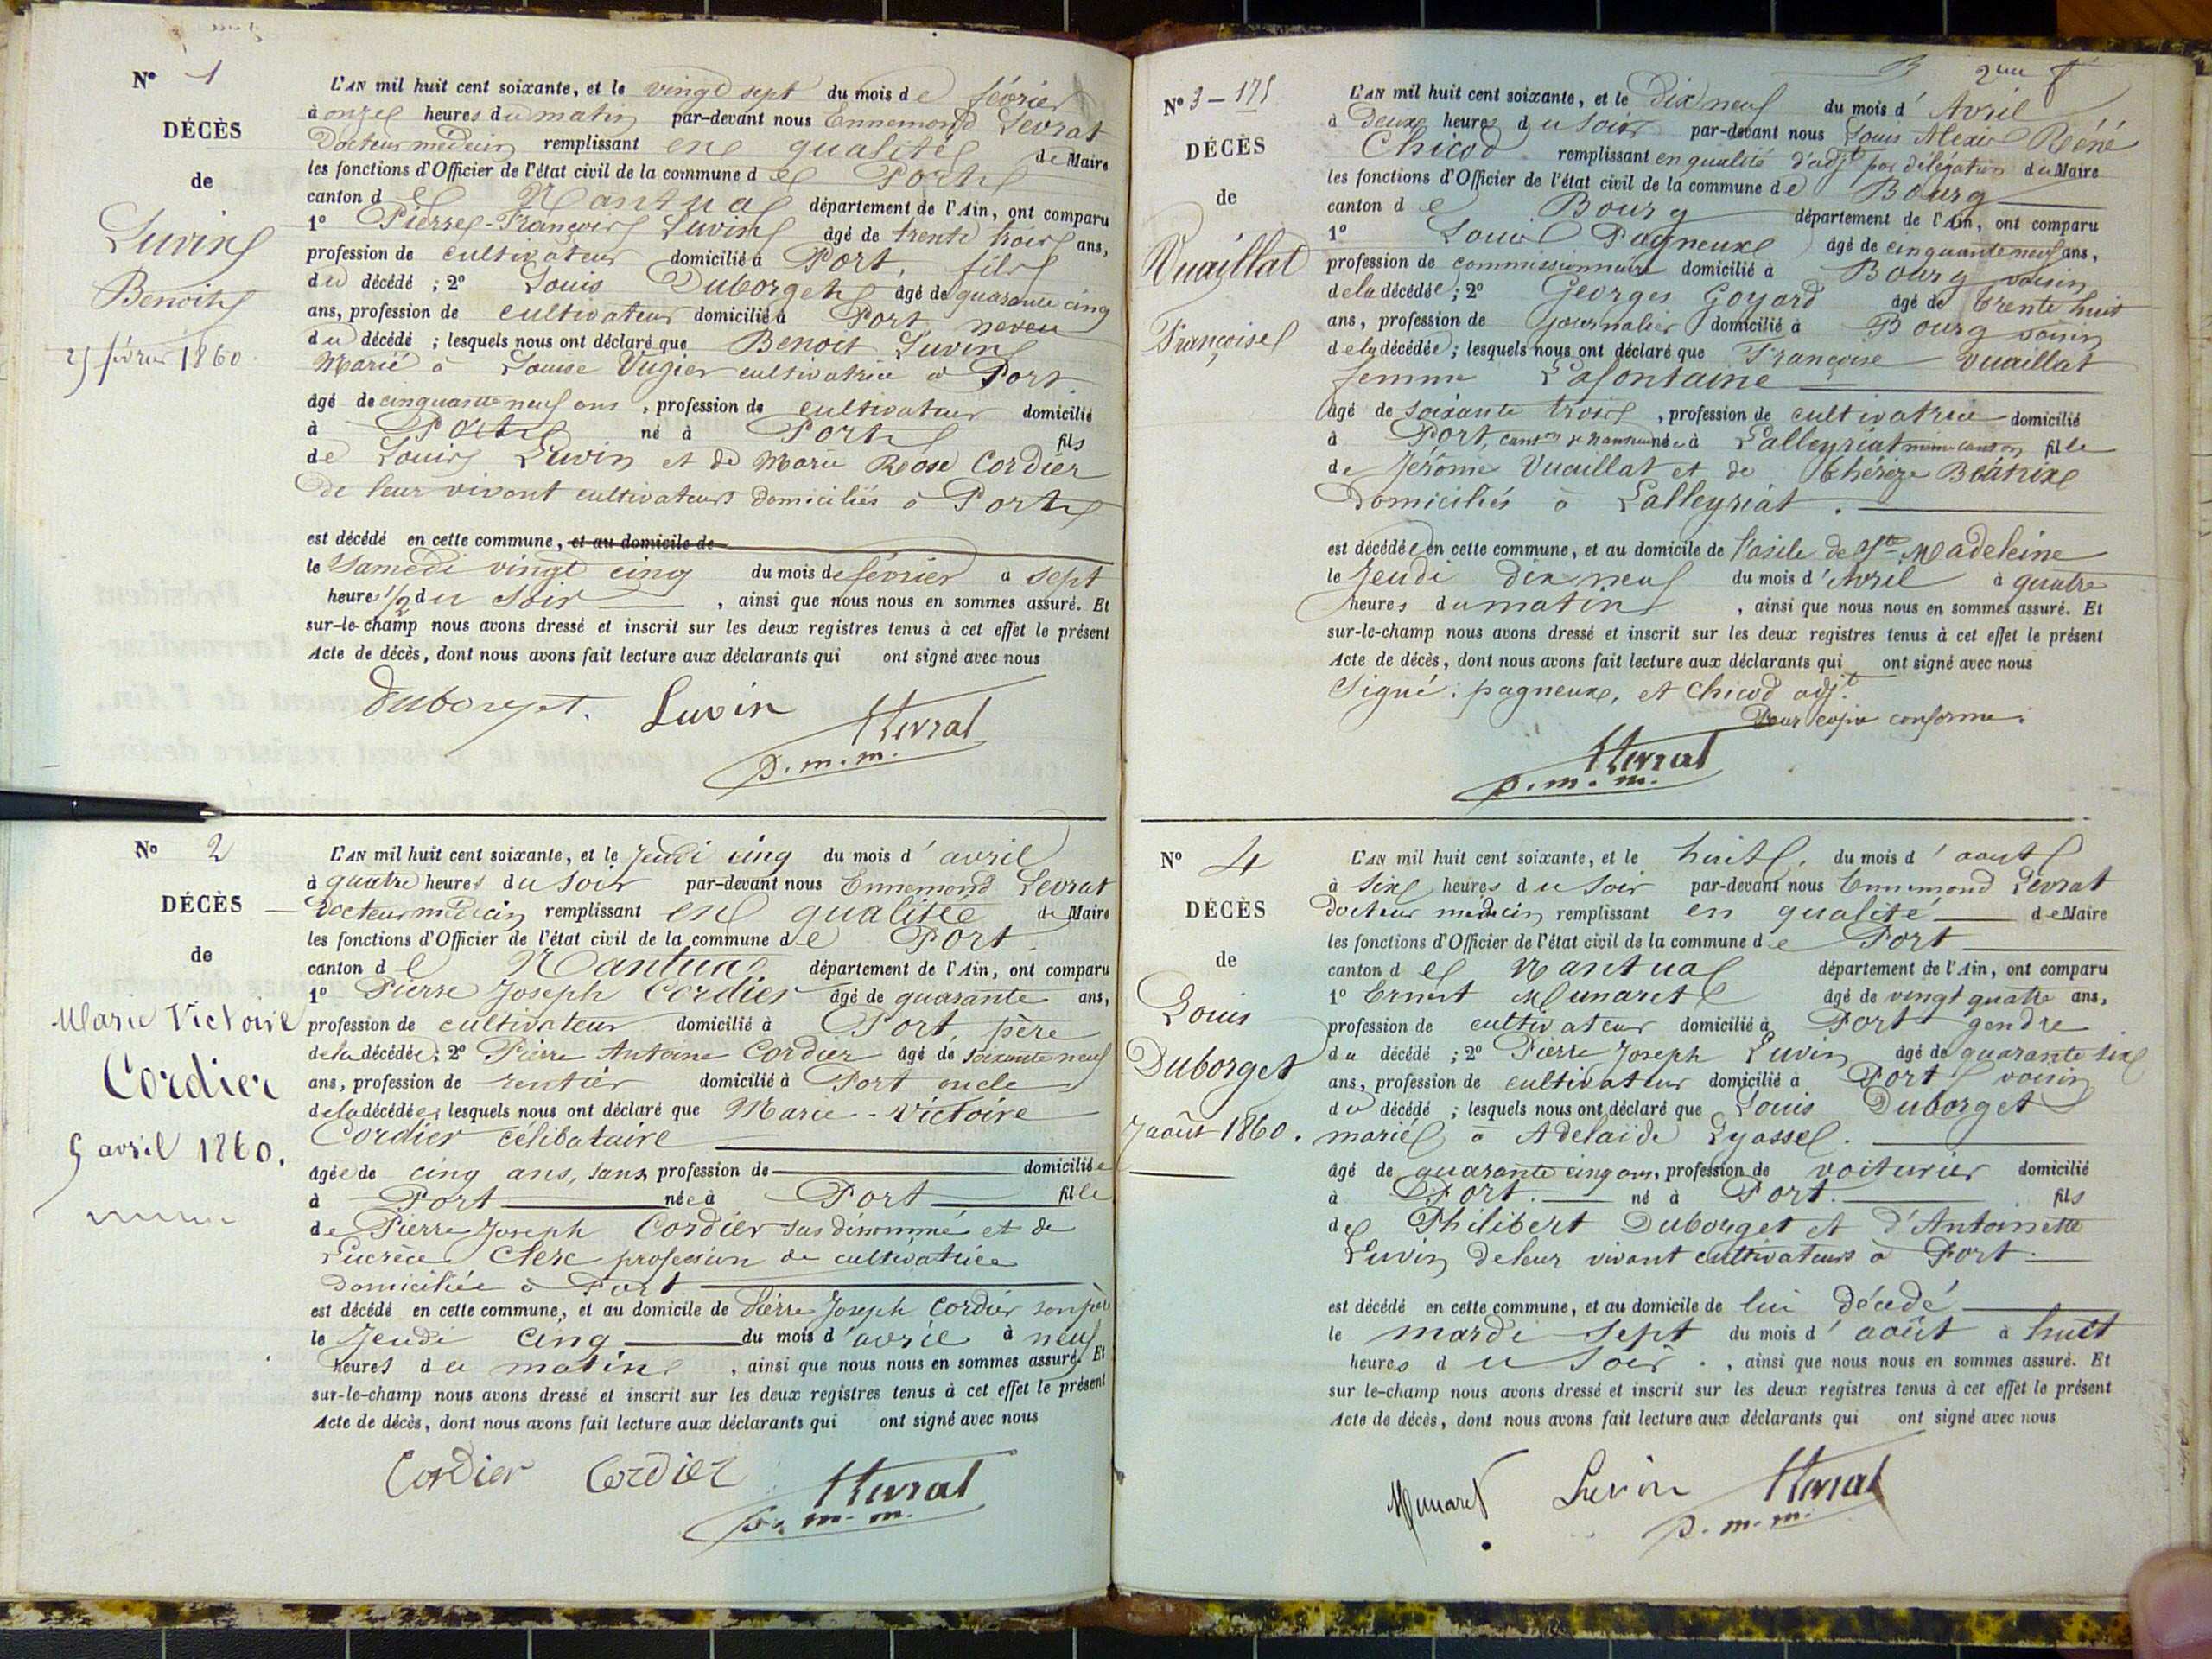 N° 1
DÉCÈS
de
Luvin
Benoit
25 février 1860.
L'AN mil huit cent soixante, et le vingt sept du mois de février
à onze heures du matin par-devant nous Ennemond Levrat
Docteur médecin remplissant en qualité de Maire
les fonctions d'Officier de l'état civil de la commune de Port
canton de Nantua département de l'Ain, ont comparu
1° Pierre-François Luvin âgé de trente trois ans,
profession de cultivateur domicilié à Port, fils
du décédé ; 2° Louis Duborget âgé de quarante cinq
ans, profession de cultivateur domicilié à Port, neveu
du décédé ; lesquels nous ont déclaré que Benoit Luvin
Marié à Louise Vugier cultivatrice à Port
âgé de cinquante neuf ans, profession de cultivateur domicilié
à Port né à Port fils
de Louis Luvin et de Marie Rose Cordier
de leur vivant cultivateurs domiciliés à Port
est décédé en cette commune, et au domicile de
le Samedi vingt cinq du mois de février à sept
heures 1/2 du soir , ainsi que nous nous en sommes assuré. Et
sur-le-champ nous avons dressé et inscrit sur les deux registres tenus à cet effet le présent
Acte de décès, dont nous avons fait lecture aux déclarants qui ont signé avec nous
Duborget. Luvin Levrat
d. m. m.
N° 2
DÉCÈS
de
Marie Victoire
Cordier
5 avril 1860.
L'AN mil huit cent soixante, et le Jeudi cinq du mois d'avril
à quatre heures du soir par-devant nous Ennemond Levrat
Docteur médecin remplissant en qualité de Maire
les fonctions d'Officier de l'état civil de la commune de Port
canton de Nantua département de l'Ain, ont comparu
1° Pierre Joseph Cordier âgé de quarante ans,
profession de cultivateur domicilié à Port, père
de la décédée ; 2° Pierre Antoine Cordier âgé de soixante neuf
ans, profession de rentier domicilié à Port oncle
de la décédée ; lesquels nous ont déclaré que Marie-Victoire
Cordier célibataire
âgée de cinq ans, sans profession de domiciliée
à Port née à Port fille
de Pierre Joseph Cordier sus dénommé et de
Lucrèce Clerc profession de cultivatrice
Domiciliée à Port
est décédé en cette commune, et au domicile de Pierre Joseph Cordier son père
le Jeudi cinq du mois d'avril à neuf
heures du matin , ainsi que nous nous en sommes assuré. Et
sur-le-champ nous avons dressé et inscrit sur les deux registres tenus à cet effet le présent
Acte de décès, dont nous avons fait lecture aux déclarants qui ont signé avec nous
Cordier Cordier Levrat
d. m. m.
N° 3 - 175
DÉCÈS
de
Vuaillat
Françoise
L'AN mil huit cent soixante, et le Dix neuf du mois d'Avril
à Deux heures du soir par-devant nous Louis Alexis Réné
Chicod remplissant en qualité d'adjt par délégation du Maire
les fonctions d'Officier de l'état civil de la commune de Bourg
canton de Bourg département de l'Ain, ont comparu
1° Louis Pagneux âgé de cinquante neuf ans,
profession de commissionnaire domicilié à Bourg voisin
de la décédée ; 2° Georges Goyard âgé de trente huit
ans, profession de journalier domicilié à Bourg voisin
de la décédée ; lesquels nous ont déclaré que Françoise Vuaillat
femme Lafontaine
âgé de soixante trois , profession de cultivatrice domicilié
à Port, canton de Nantua née à Lalleyriat même canton fille
de Jérôme Vuaillat et de Thérèze Béatrix
Domiciliés à Lalleyriat.
est décédée en cette commune, et au domicile de l'asile de Ste Madeleine
le Jeudi dix neuf du mois d'Avril à quatre
heures du matin , ainsi que nous nous en sommes assuré. Et
sur-le-champ nous avons dressé et inscrit sur les deux registres tenus à cet effet le présent
Acte de décès, dont nous avons fait lecture aux déclarants qui ont signé avec nous
Signé : pagneux, et Chicod adjt.
Pour copie conforme.
Levrat
d. m. m.
N° 4
DÉCÈS
de
Louis
Duborget
7 août 1860.
L'AN mil huit cent soixante, et le huit, du mois d'aout
à Six heures du soir par-devant nous Ennemond Levrat
docteur médecin remplissant en qualité de Maire
les fonctions d'Officier de l'état civil de la commune de Port
canton de Nantua département de l'Ain, ont comparu
1° Ernest Munaret âgé de vingt quatre ans,
profession de cultivateur domicilié à Port gendre
du décédé ; 2° Pierre Joseph Luvin âgé de quarante six
ans, profession de cultivateur domicilié à Port voisin
du décédé ; lesquels nous ont déclaré que Louis Duborget
marié à Adelaïde Lyasse.
âgé de quarante cinq ans, profession de voiturier domicilié
à Port. né à Port. fils
de Philibert Duborget et d'Antoinette
Luvin de leur vivant cultivateurs à Port.
est décédé en cette commune, et au domicile de lui décédé
le mardi sept du mois d'août à huit
heures du soir. , ainsi que nous nous en sommes assuré. Et
sur le-champ nous avons dressé et inscrit sur les deux registres tenus à cet effet le présent
Acte de décès, dont nous avons fait lecture aux déclarants qui ont signé avec nous
Munaret Luvin Levrat
d. m. m.